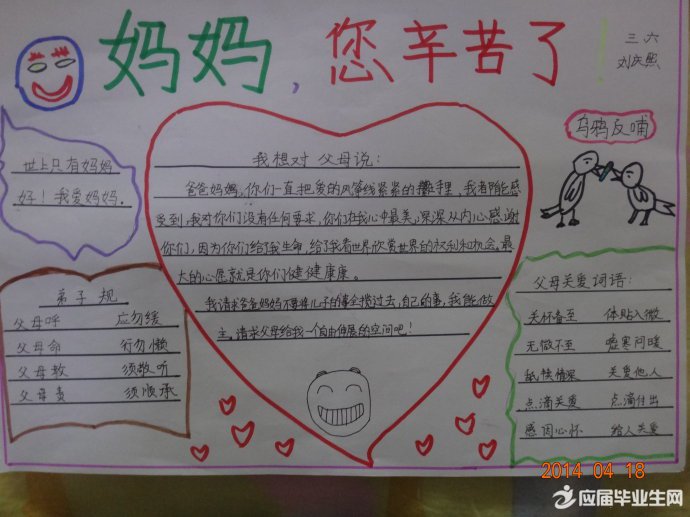 妈妈，您辛苦了！
三六
刘庆熙
世上只有妈妈
好！我爱妈妈。
我想对父母说：
爸爸妈妈，你们一直把爱的风筝线紧紧的攥手里，我都能感
受到，我对你们没有任何要求，你们在我心中最美，深深从内心感谢
你们，因为你们给了我生命，给了我看世界欣赏世界的权利和机会。最
大的心愿就是你们健健康康。
我请求爸爸妈妈不要将儿子的事全揽过去，自己的事，我能做
主。请求父母给我一个自由伸展的空间吧！
乌鸦反哺
弟子规
父母呼 应勿缓
父母命 行勿懒
父母教 须敬听
父母责 须顺承
父母关爱词语：
关怀备至 体贴入微
无微不至 嘘寒问暖
舐犊情深 关爱他人
点滴关爱 点滴付出
感因心怀 给人关爱
2014 04 18
应届毕业生网